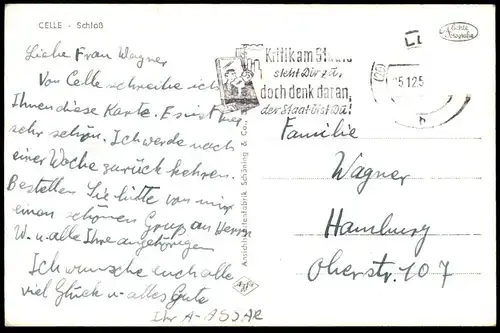 CELLE - Schloß
Liebe Frau Wagner
Von Celle schreibe ich
Ihnen diese Karte. Es ist hier
sehr schön. Ich werde nach
einer Woche zurück kehren.
Bestellen Sie bitte von mir
einen schönen Gruß an Herrn
W. u. alle Ihre angehörigen
Ich wünsche euch alle
viel Glück u. alles Gute
Ihr A-ASSAR
Ansichtskartenfabrik Schöning & Co.
Kritik am Staate
steht Dir zu,
doch denk daran,
der Staat bist Du!
Echte
Fotografie
Familie
Wagner
Hamburg
Oherstr. 107